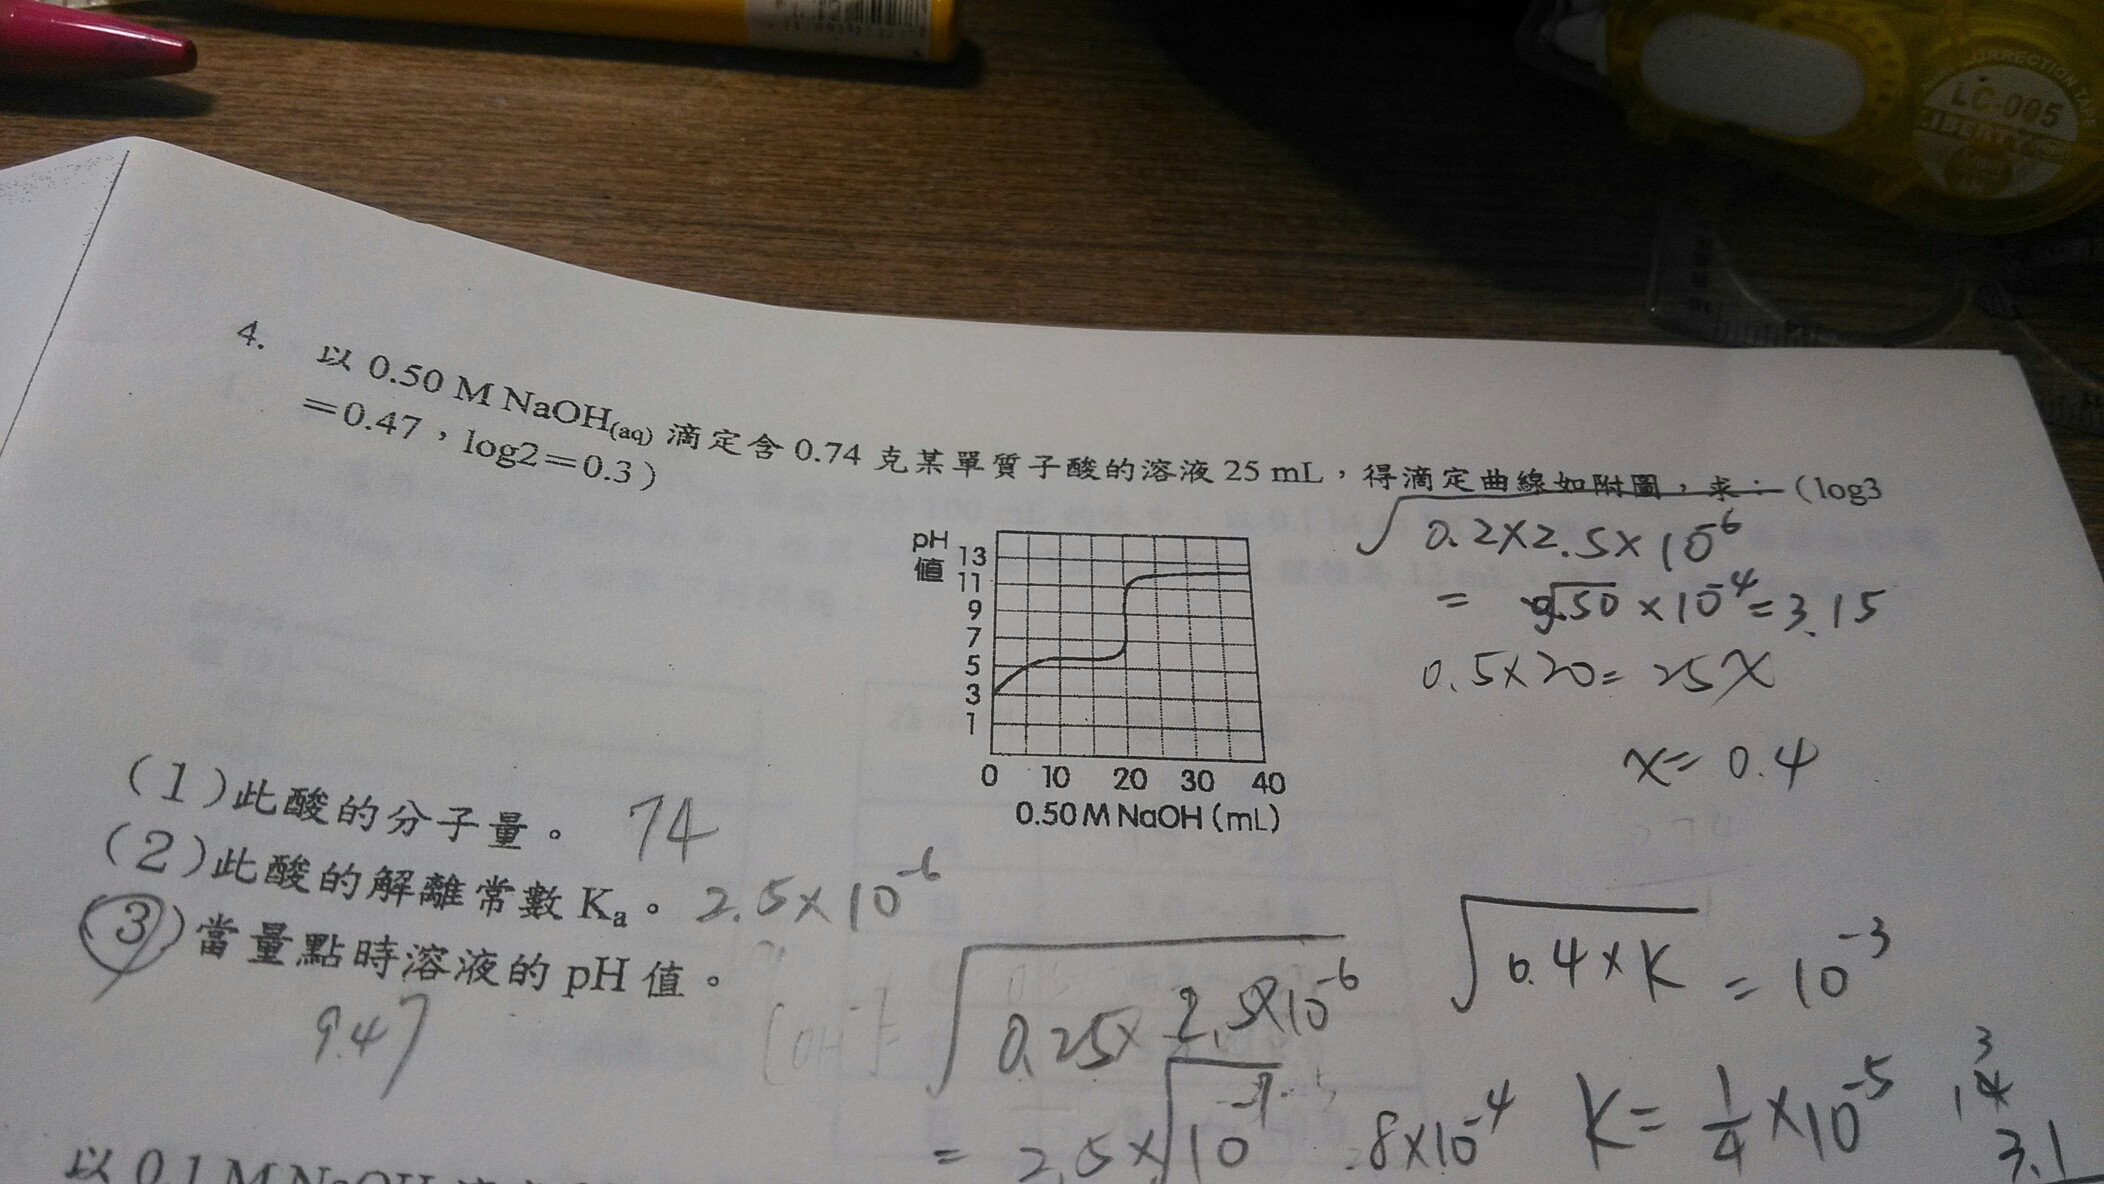 CORRECTION TAPE
LC-005
LIBERTY
4. 以 0.50 M NaOH(aq) 滴定含 0.74 克某單質子酸的溶液 25 mL，得滴定曲線如附圖，求：（log3
＝0.47，log2＝0.3）
pH
值
13
11
9
7
5
3
1
0 10 20 30 40
0.50 M NaOH (mL)
√0.2×2.5×10⁻⁶
= √.50 ×10⁻⁴ = 3.15
0.5×20 = 25x
x = 0.4
(1)此酸的分子量。 74
(2)此酸的解離常數 Ka。 2.5×10⁻⁶
(3)當量點時溶液的 pH 值。
9.47
[OH⁻]= √0.25× 2.5×10⁻⁶
√0.4×K = 10⁻³
K = 1/4 ×10⁻⁵
.8×10⁻⁴
3.1
以 0.1 M NaOH